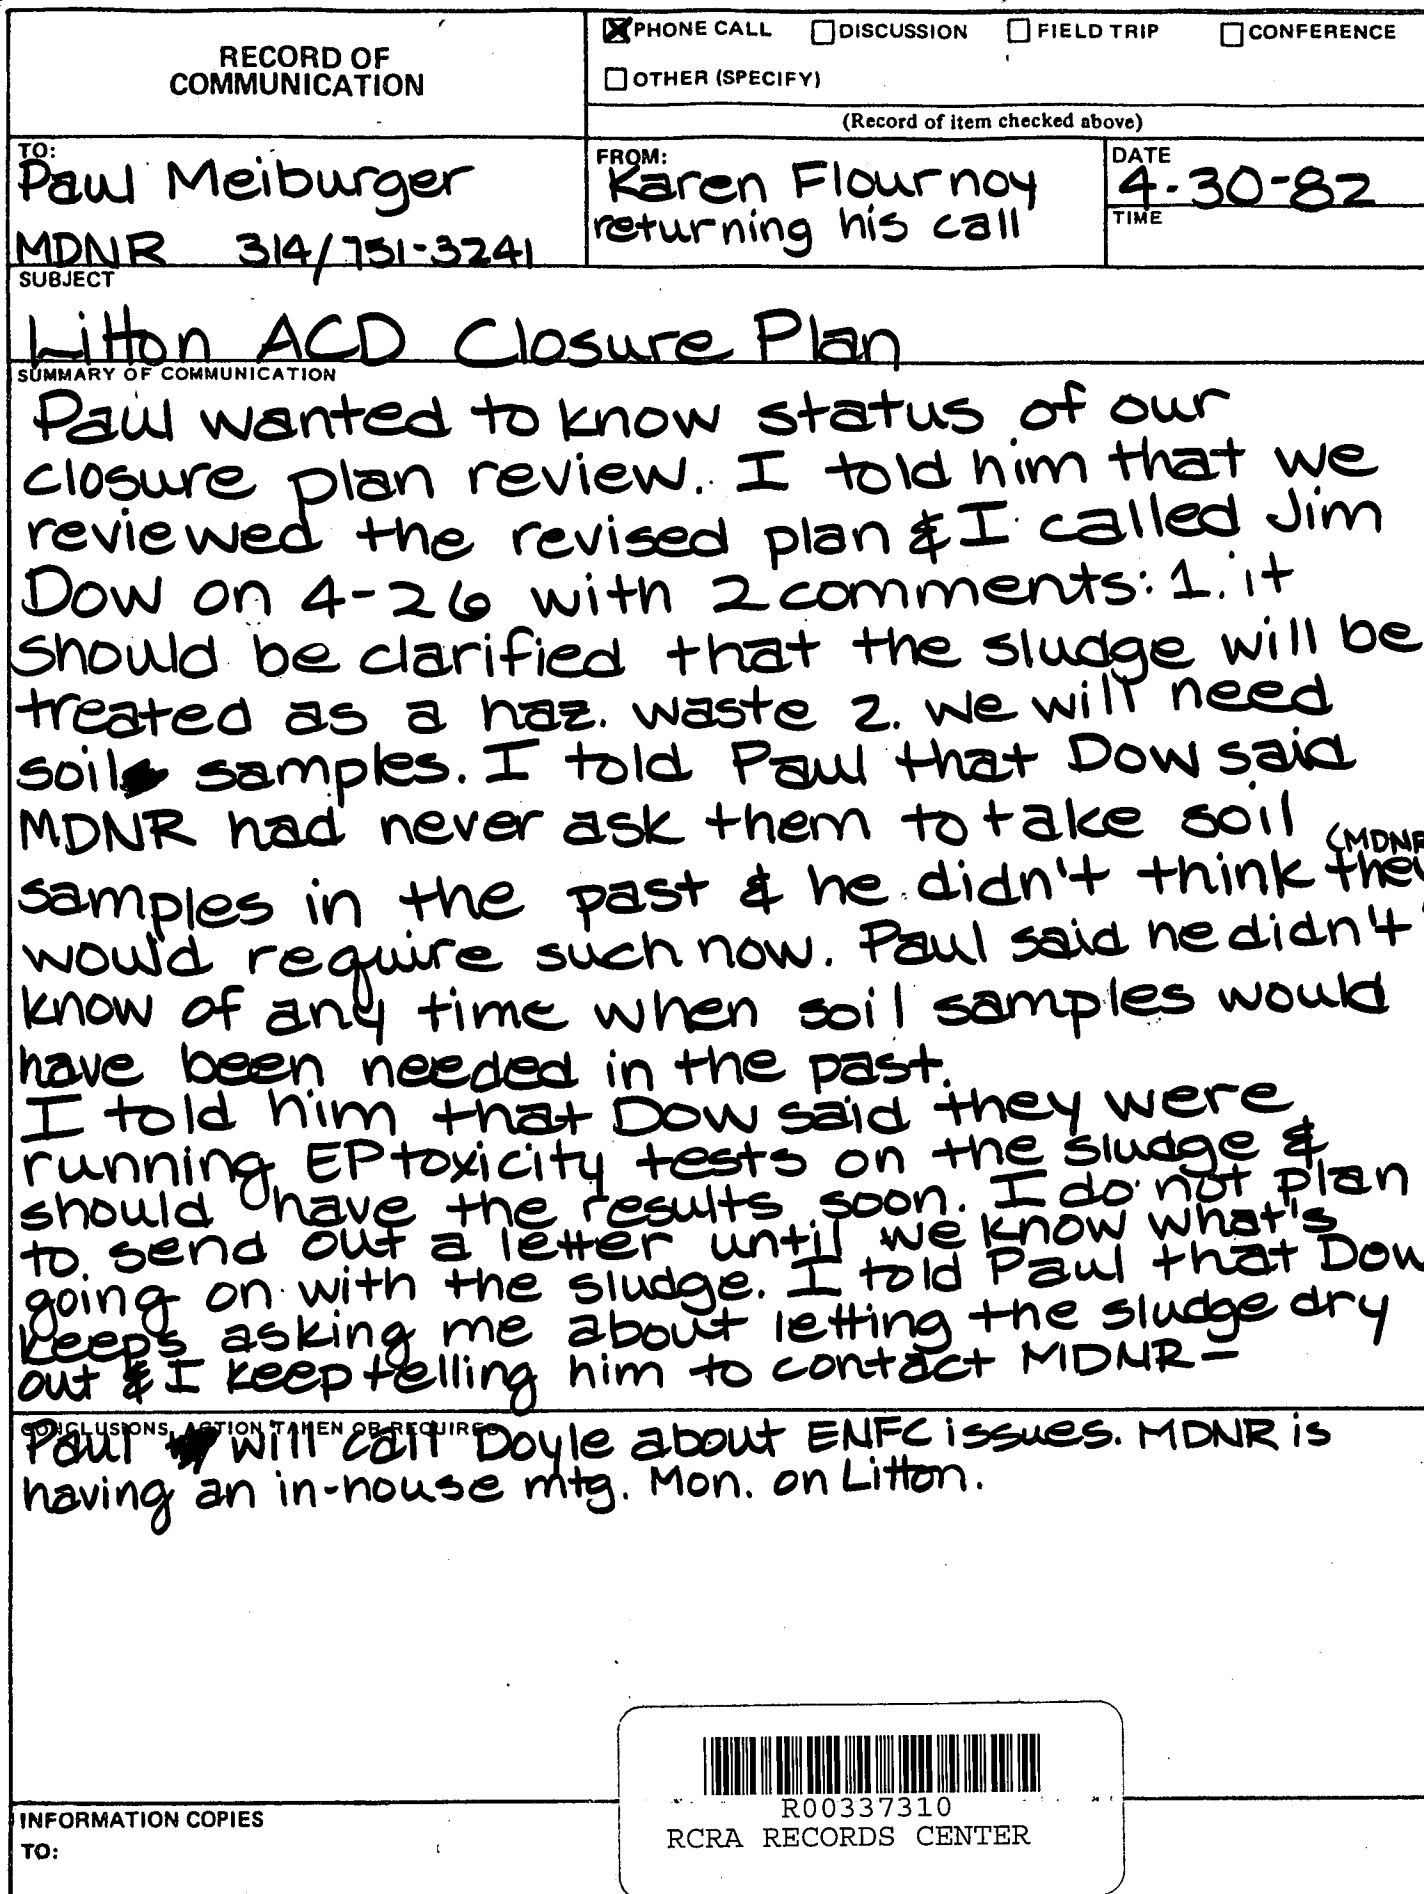 RECORD OF
COMMUNICATION
PHONE CALL DISCUSSION FIELD TRIP CONFERENCE
OTHER (SPECIFY)
(Record of item checked above)
TO:
Paul Meiburger
MDNR 314/751-3241
FROM:
Karen Flournoy
returning his call
DATE
4-30-82
TIME
SUBJECT
Litton ACD Closure Plan
SUMMARY OF COMMUNICATION
Paul wanted to know status of our
closure plan review. I told him that we
reviewed the revised plan & I called Jim
Dow on 4-26 with 2 comments: 1. it
should be clarified that the sludge will be
treated as a haz. waste 2. we will need
soil samples. I told Paul that Dow said
MDNR had never ask them to take soil
(MDNR
samples in the past & he didn't think they
would require such now. Paul said he didn't
know of any time when soil samples would
have been needed in the past.
I told him that Dow said they were
running EP toxicity tests on the sludge &
should have the results soon. I do not plan
to send out a letter until we know what's
going on with the sludge. I told Paul that Dow
keeps asking me about letting the sludge dry
out & I keep telling him to contact MDNR-
CONCLUSIONS, ACTION TAKEN OR REQUIRED
Paul will call Doyle about ENFC issues. MDNR is
having an in-house mtg. Mon. on Litton.
R00337310
RCRA RECORDS CENTER
INFORMATION COPIES
TO: